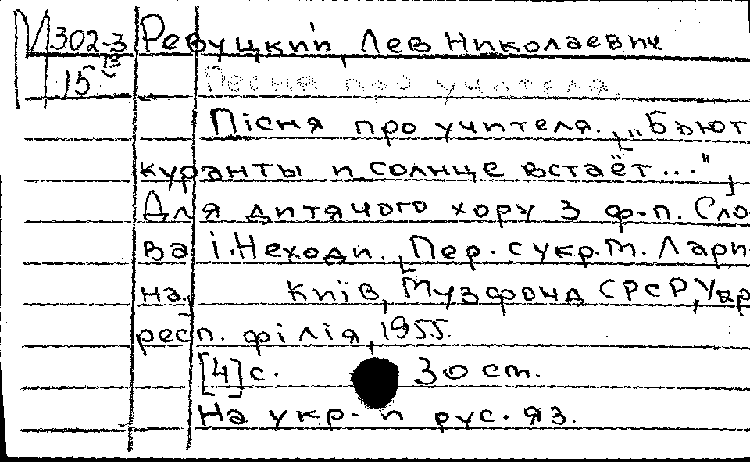 М 302-3 Ревуцкий, Лев Николаевич
15 Песня про учителя.
Пісня про учителя. [„Бьют
куранты и солнце встаёт..."]
Для дитячого хору з ф-п. Сло
ва І. Неходи. [Пер. с укр. М. Лари-
на. Київ, Музфонд СРСР, Укр
респ. філія, 1955.
[4] с. 30 ст.
На укр. и рус. яз.